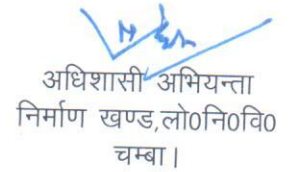 अधिशासी अभियन्ता
निर्माण खण्ड,लो0नि0वि0
चम्बा।